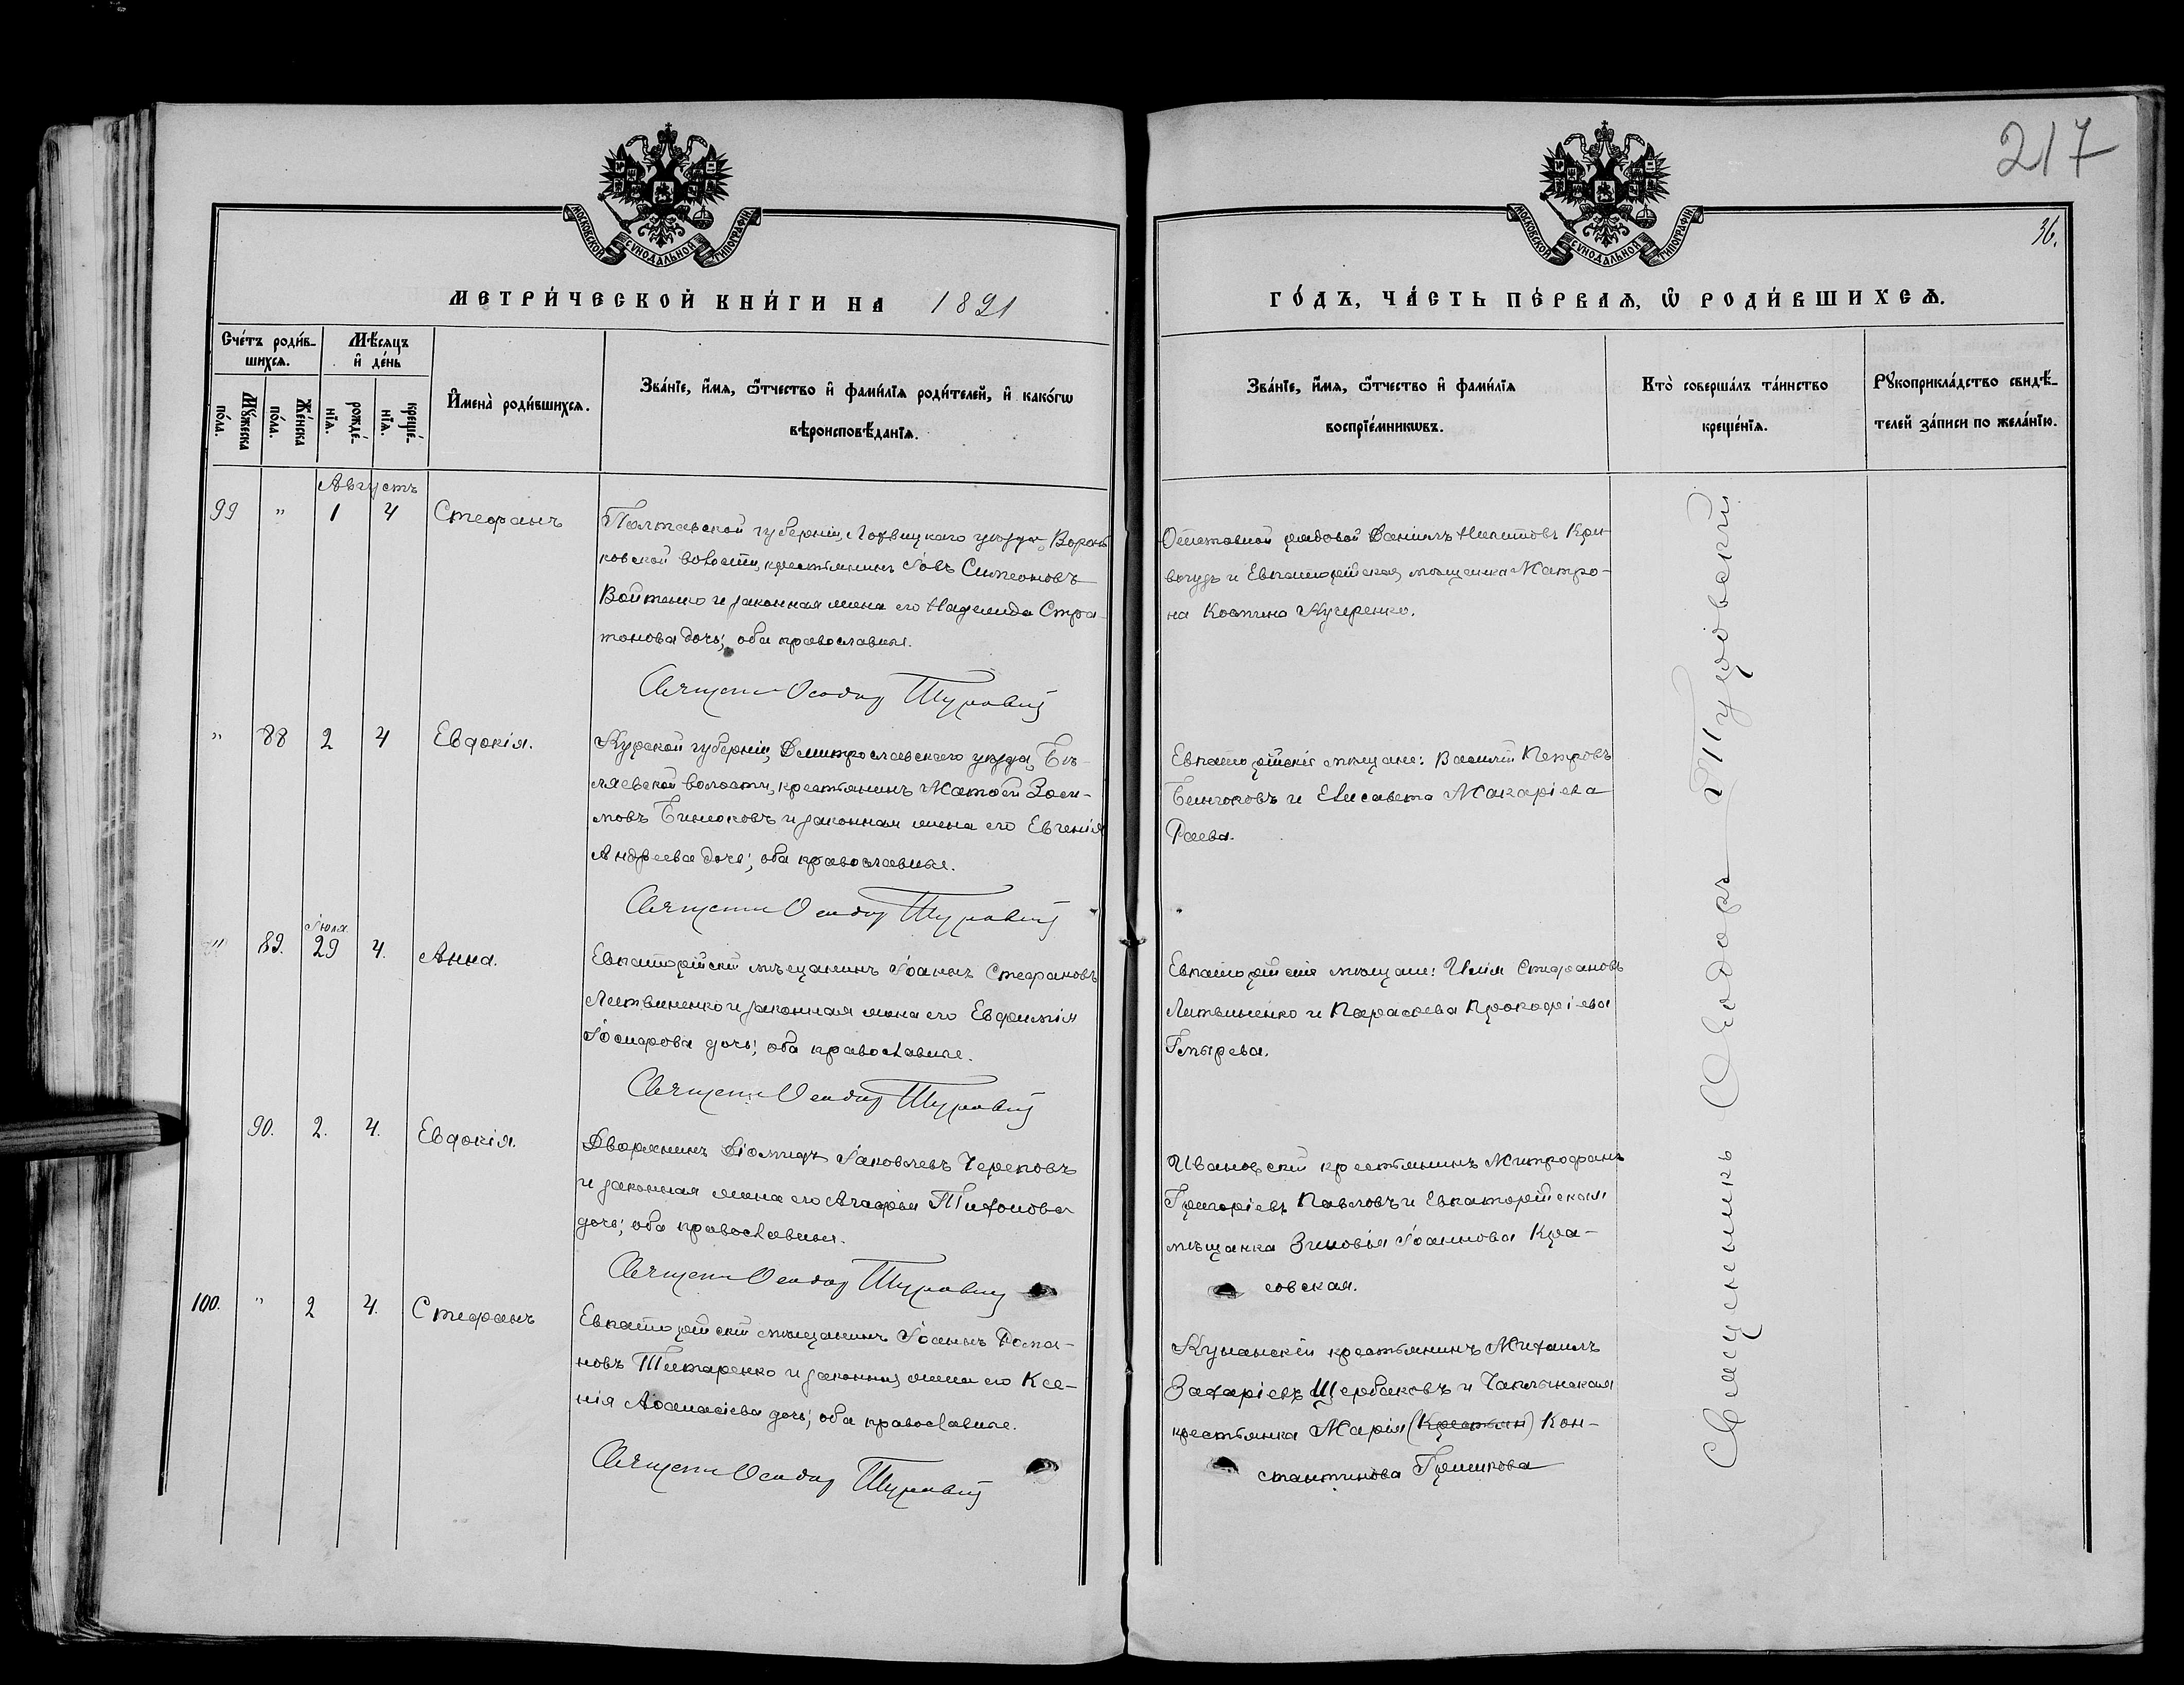 217
36.
МОСКОВСКОЙ СѴНОДАЛЬНОЙ ТИПОГРАФІИ
МОСКОВСКОЙ СѴНОДАЛЬНОЙ ТИПОГРАФІИ
МЕТРИ́ЧЕСКОЙ КНИ́ГИ НА 1891
ГО́ДЪ, ЧА́СТЬ ПЕ́РВАѦ, Ѡ РОДИ́ВШИХСѦ.
Сче́тъ роди́в-
шихсѧ.
Мѣ́сѧцъ
и де́нь
Мꙋ́жеска по́ла.
Же́нска по́ла.
рожде́-нїѧ.
креще́-нїѧ.
И҆мена̀ роди́вшихсѧ.
Зва́нїе, и҆́мѧ, ѻ҆́тчество и҆ фами́лїѧ роди́телей, и҆ како́гѡ
вѣроисповѣ́данїѧ.
Зва́нїе, и҆́мѧ, ѻ҆́тчество и҆ фами́лїѧ
воспрїе́мникѡвъ.
Кто̀ соверша́лъ та́инство
креще́нїѧ.
Рꙋкоприкла́дство свидѣ́-
телей за́писи по жела́нїю.
Августъ
99 " 1 4 Стефанъ
Полтавской губерніи, Лохвицкаго уезда, Ворон
ковской волости, крестьянинъ Іовъ Симеоновъ
Войтенко и законная жена его Надежда Стра-
тонова дочь; оба православные.
Священ Ѳеодор Туровскій
Отставной рядовой Даніилъ Филиповъ Кри-
вчудъ и Евпаторійская мѣщанка Матро-
на Костина Кучеренко.
" 88 2 4 Евдокія.
Курской губерніи, Дмитрославскаго уезда, Бѣ-
ляевской волости, крестьянинъ Матѳей Зоси-
мовъ Бинюковъ и законная жена его Евгенія
Андреева дочь; оба православные.
Священ Ѳеодор Туровскій
Евпаторійскіе мѣщане: Василій Петровъ
и Елисавета Макаріева
Раева.
Іюля
" 89. 29 4. Анна.
Евпаторійскій мѣщанинъ Іоаннъ Стефановъ
Литвиненко и законная жена его Евфимія
Іосифова дочь; оба православные.
Священ Ѳеодор Туровскій
Евпаторійскіе мѣщане: Илія Стефановъ
Литвиненко и Параскева Прокофіева
Гмырева.
90. 2. 4. Евдокія.
Дворянинъ Діомидъ Іаковлевъ Череповъ
и законная жена его Агафія Тихонова
дочь; оба православные.
Священ Ѳеодор Туровскій
Ивановскій крестьянинъ Митрофанъ
Григоріевъ Павловъ и Евпаторійская
мѣщанка Зиновія Іоаннова Кра-
совская.
100. " 2 4. Стефанъ
Евпаторійскій мѣщанинъ Іоаннъ Рома-
новъ Титаренко и законная жена его Ксе-
нія Аѳанасіева дочь; оба православные.
Священ Ѳеодор Туровскій
Купянскій крестьянинъ Михаилъ
Захаріевъ Щербаковъ и Чаплынская
крестьянка Марія (Крестьян) Кон-
стантинова Гришкова
Священникъ Ѳеодоръ Туровскій